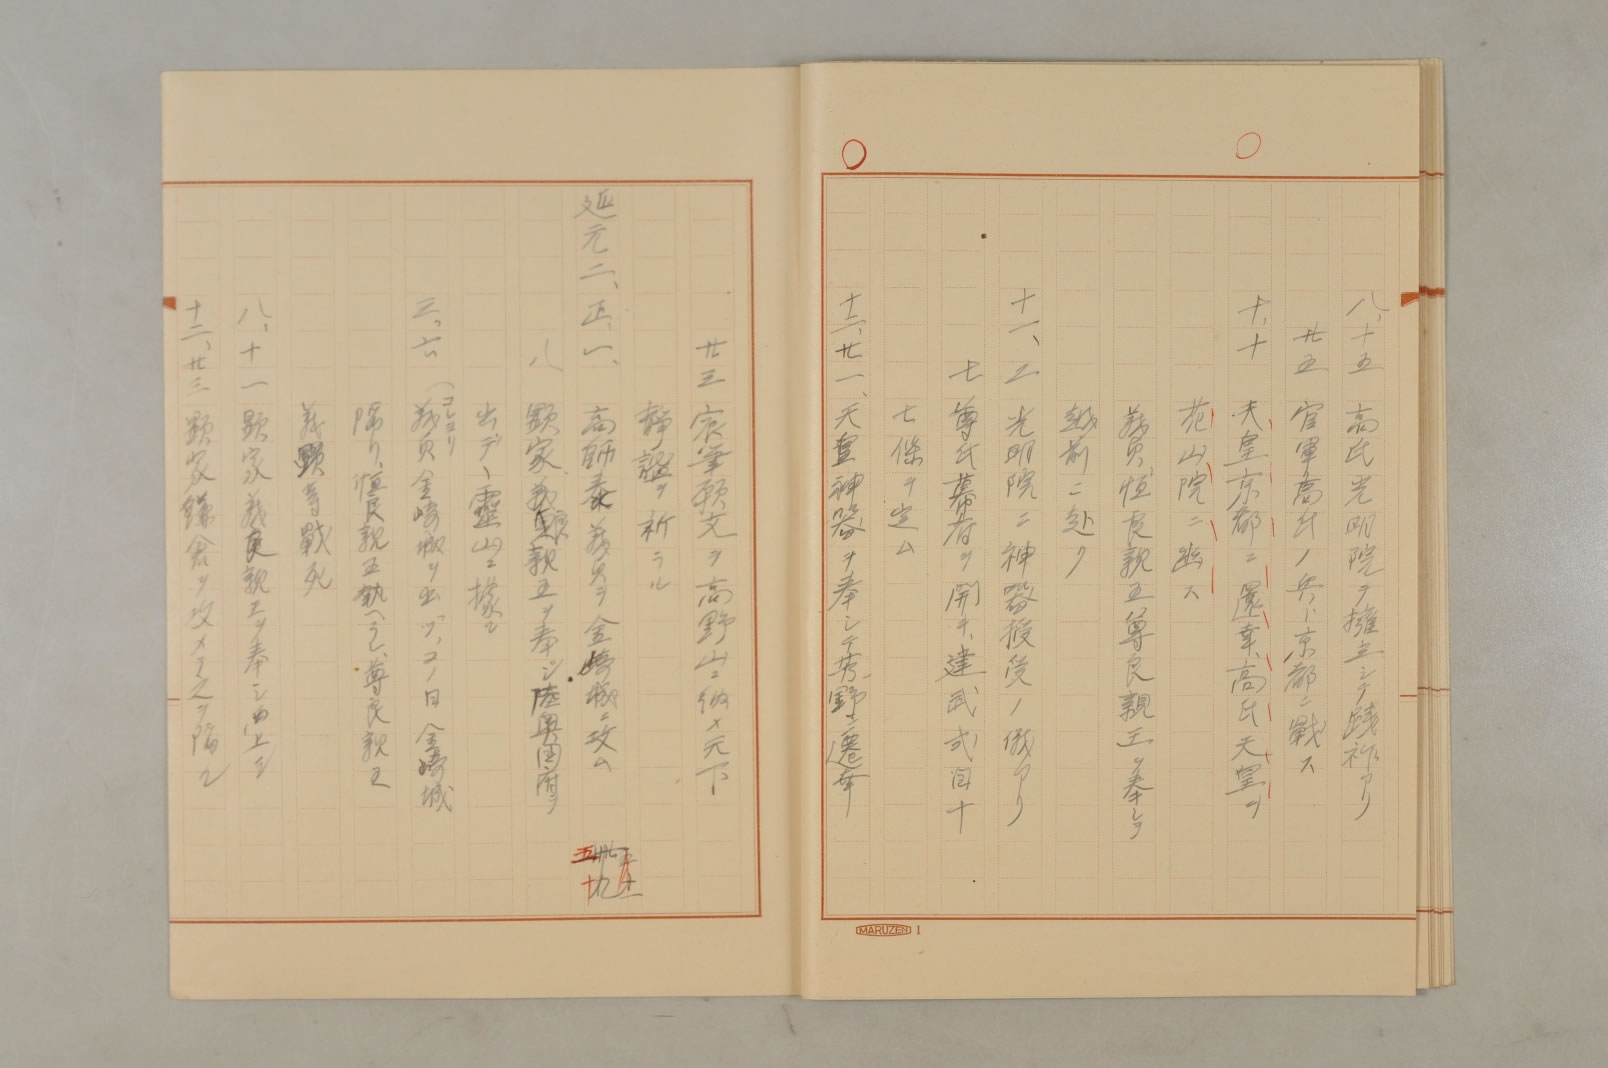 八、十五 高氏光明院ヲ擁立シテ践祚アリ
廿五 官軍高氏ノ兵ト京都ニ戰ス
十、十 天皇京都ニ還幸、高氏天皇ヲ
花山院ニ幽ス
義貞、恒良親王尊良親王ヲ奉シテ
越前ニ赴ク
十一、二 光明院ニ神器授受ノ儀アリ
七 尊氏幕府ヲ開キ、建武式目十
七條ヲ定ム
十二、廿一、天皇神器ヲ奉シテ芳野ニ遷幸
MARUZEN 1
廿三 宸筆願文ヲ高野山ニ納メ天下
靜謐ヲ祈ラル
延元二、正、一、 高師泰義貞ヲ金崎城ニ攻ム
八 顕家、義良親王ヲ奉ジ陸奥国府ヲ
出デテ靈山ニ據ル
三、六 義貞金崎城ヲ出ヅ、コノ日金崎城
(コレヨリ
陥リ、恒良親王執ヘラレ、尊良親王
義顕等戰死
八、十一 顕家義良親王ヲ奉シ西上ス
十二、廿三 顕家鎌倉ヲ攻メテ之ヲ陥ル